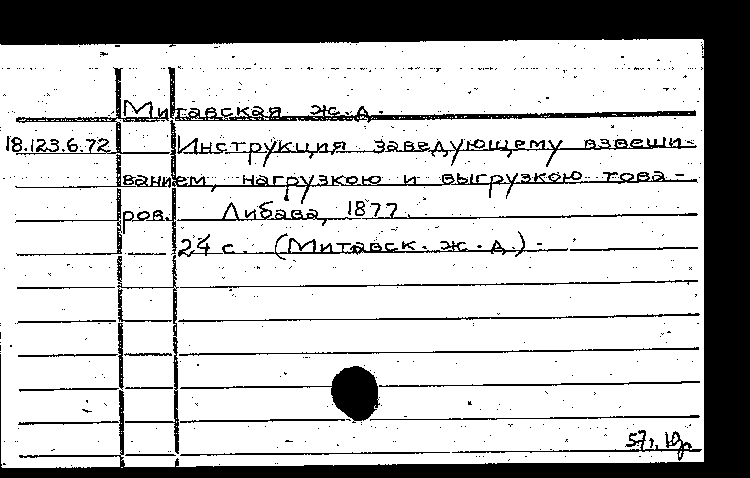 Митавская ж.д.
18.123.6.72 Инструкция заведующему взвеши-
ванием, нагрузкою и выгрузкою това-
ров. Либава, 1877.
24 с. (Митавск. ж.д.) -